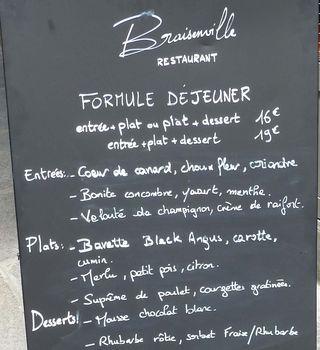 Braisenville
RESTAURANT
FORMULE DÉJEUNER
entrée + plat ou plat + dessert 16€
entrée + plat + dessert 19€
Entrées: - Coeur de canard, choux fleur, coriandre
- Bonite concombre, yaourt, menthe.
- Velouté de champignon, crème de raifort.
Plats: - Bavette Black Angus, carotte,
cumin.
- Merlu, petit pois, citron.
- Suprême de poulet, courgettes gratinées.
Desserts: - Mousse chocolat blanc.
- Rhubarbe rôtie, sorbet Fraise/Rhubarbe